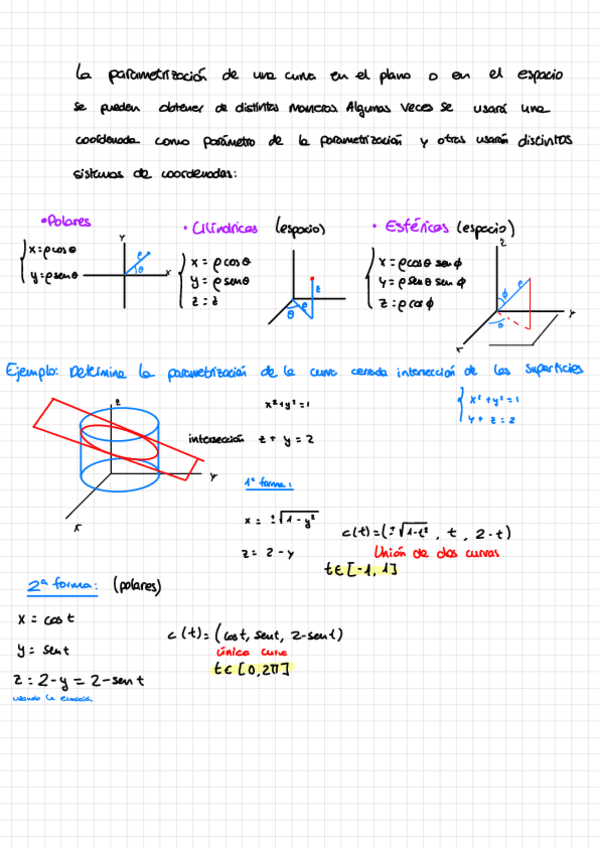 La parametrización de una curva en el plano o en el espacio
se pueden obtener de distintas maneras. Algunas veces se usará una
coordenada como parámetro de la parametrización y otras usarán distintos
sistemas de coordenadas:
• Polares
x = ρcosθ
y = ρsenθ
Y
ρ
θ
x
• Cilíndricas (espacio)
x = ρcosθ
y = ρsenθ
z = z
z
θ
ρ
• Esféricas (espacio)
x = ρcosθ senϕ
y = ρsenθ senϕ
z = ρcosϕ
z
ϕ
ρ
θ
Y
x
Ejemplo: Determina la parametrización de la curva cerrada intersección de las superficies
x² + y² = 1
y + z = 2
z
Y
x
x²+y²=1
intersección z + y = 2
1ª forma:
x = ±√1-y²
z = 2-y
c(t)=(±√1-t², t, 2-t)
Unión de dos curvas
t∈[-1, 1]
2ª forma: (polares)
x = cost
y = sent
z = 2-y = 2-sent
usando la ecuación
c(t)=(cost, sent, 2-sent)
única curva
t∈[0,2π]